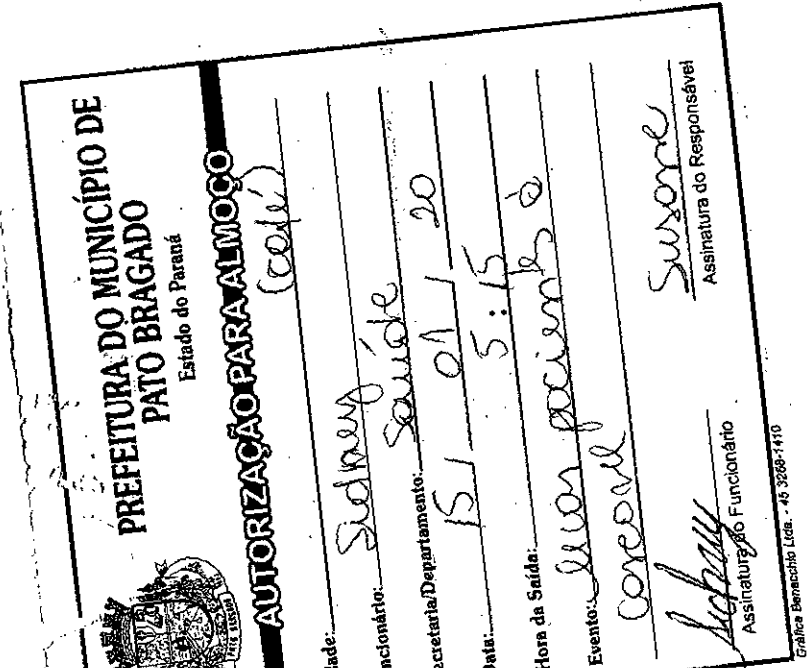 PREFEITURA DO MUNICÍPIO DE
PATO BRAGADO
Estado do Paraná
AUTORIZAÇÃO PARA ALMOÇO
(café)
dade:
ncionário: Sidney
ecretaria/Departamento: Saúde
Data: 15 / 01 / 20
Hora da Saída: 5:15
Evento: levar pacientes à
cascavel
Sidney Susane
Assinatura do Funcionário Assinatura do Responsável
Gráfica Benacchio Ltda. - 45 3268-1410